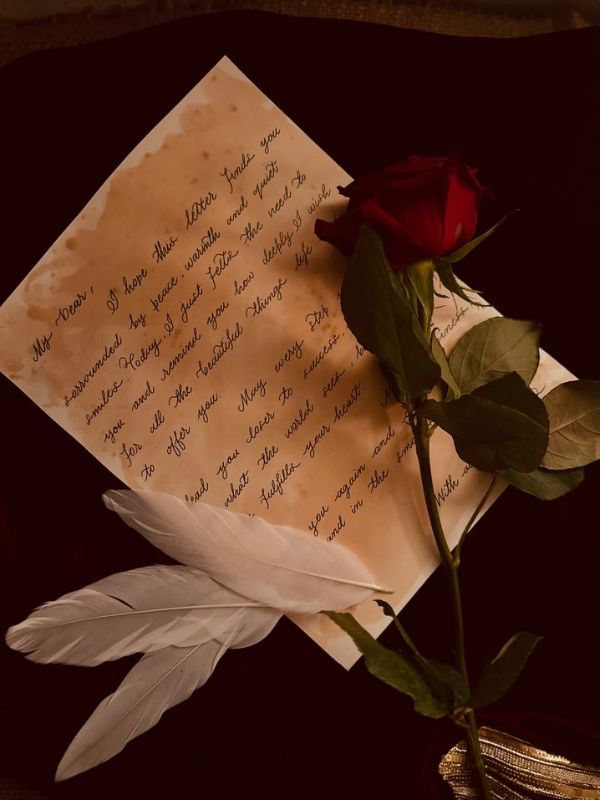 My Dear,
I hope this letter finds you
sorrounded by peace, warmth and quiet
smiles. Today, I just felts the need to
you and remind you how deeply I wish
for all the beautiful things life
to offer you. May every step
lead you closer to success,
what the world sees,
fulfills your heart.
you again and
and in the
With